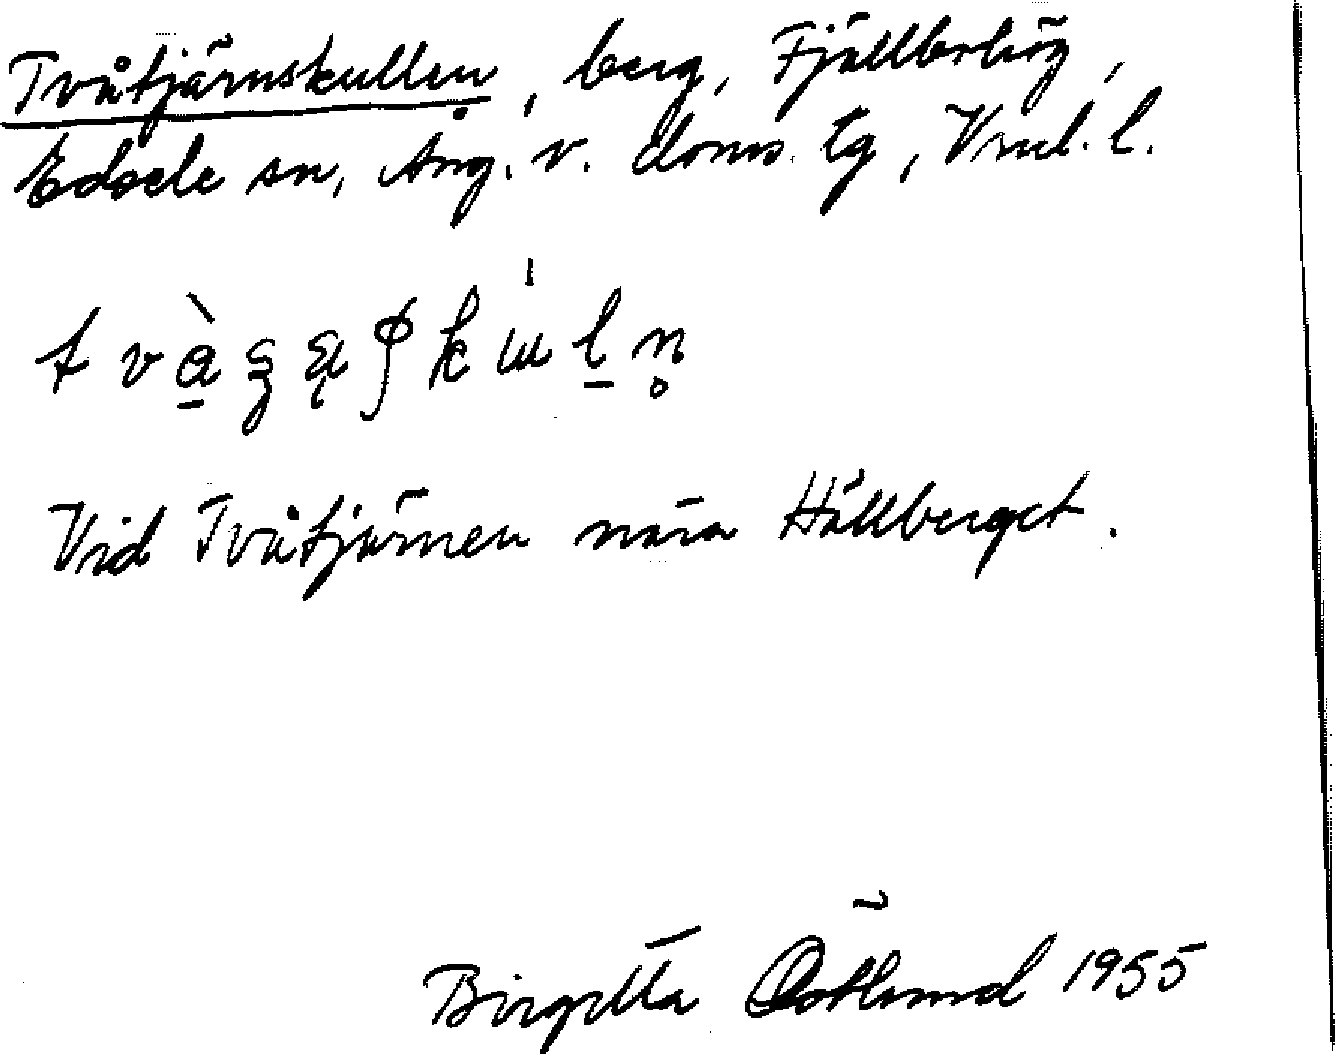 Tvåtjärnskullen, berg, Fjällbohög,
Edsele sn, Ång. v. doms. tg, Vnl. l.
Vid Tvåtjärnen nära Hällberget.
Birgitta Östlund 1955